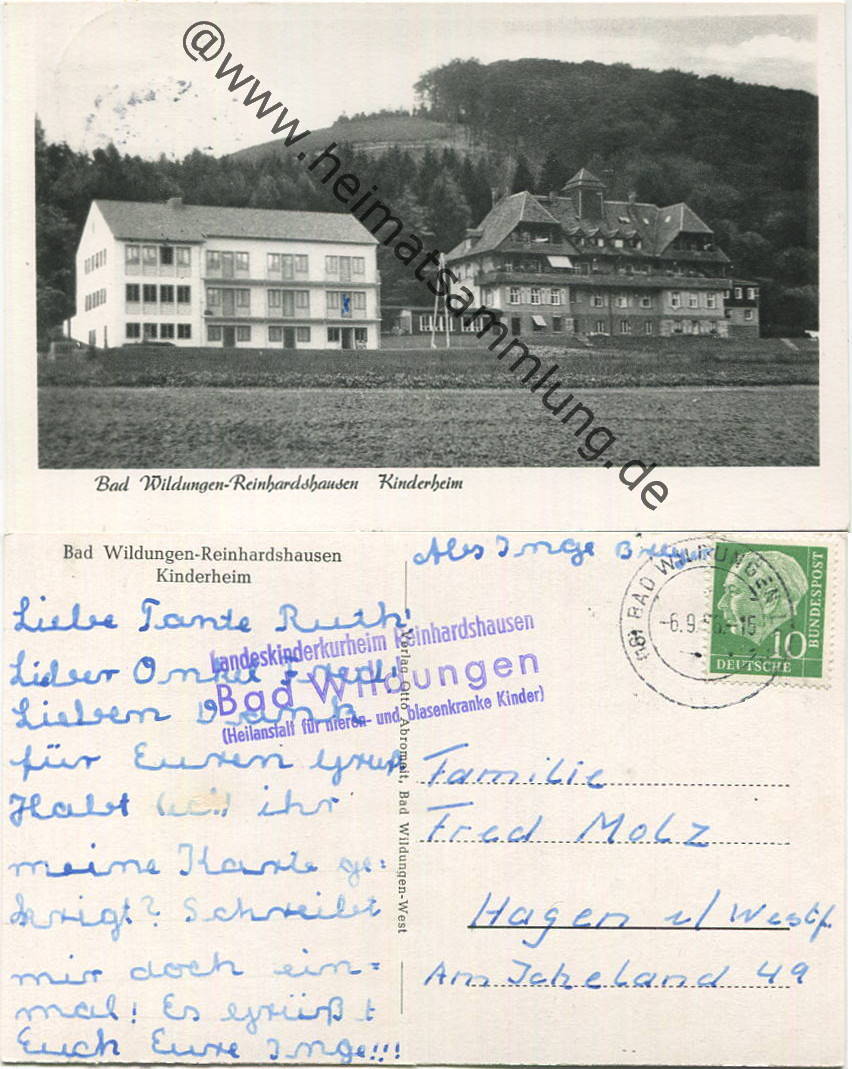 @www.heimatsammlung.de
Bad Wildungen-Reinhardshausen Kinderheim
Bad Wildungen-Reinhardshausen
Kinderheim
Liebe Tante Ruth!
Lieber Onkel Fred!
Lieben Dank
für Euren Gruß
Habt ihr
meine Karte ge=
krigt? Schreibt
mir doch ein=
mal! Es grüßt
Euch Eure Inge!!!
Landeskinderkurheim Reinhardshausen
Bad Wildungen
(Heilanstalt für nieren- und blasenkranke Kinder)
Verlag Otto Abromeit, Bad Wildungen-West
Abs Inge
BAD WILDUNGEN
-6.9. -15
10
DEUTSCHE
BUNDESPOST
Familie
Fred Molz
Hagen i/Westf.
Am Ischeland 49